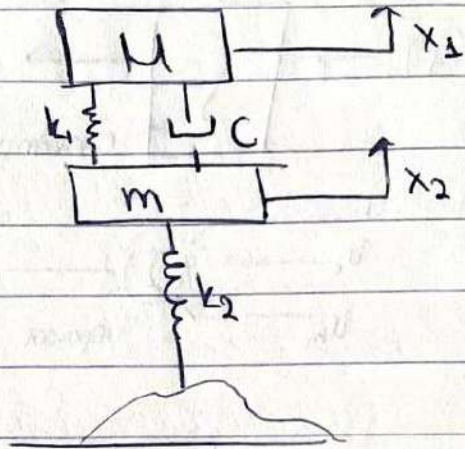 M
x1
k1
C
x2
m
k2